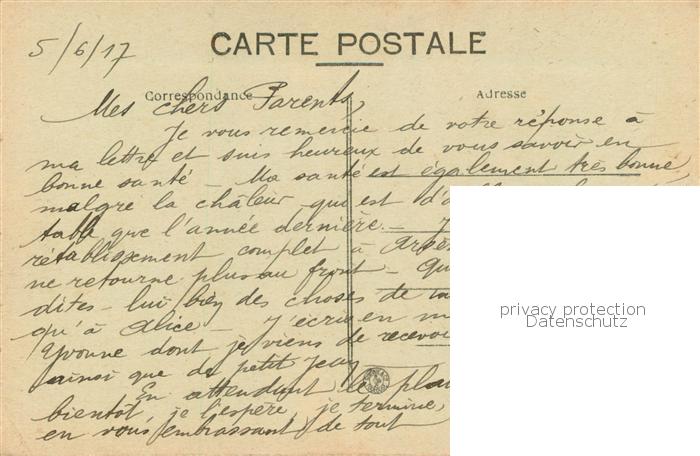 5/6/17
CARTE POSTALE
Correspondance
Adresse
Mes chers Parents,
Je vous remercie de votre réponse à
ma lettre et suis heureux de vous savoir en
bonne santé — Ma santé est également très bonne,
malgré la châleur qui est
table que l'année dernière. —
rétablissement complet à
ne retourne plus au front —
dites-lui bien des choses de
qu'à Alice — J'écris en
Yvonne dont je viens de recevoir
ainsi que de petit Jean
En attendant le
bientôt, je l'espère, je termine,
en vous embrassant de tout
privacy protection
Datenschutz